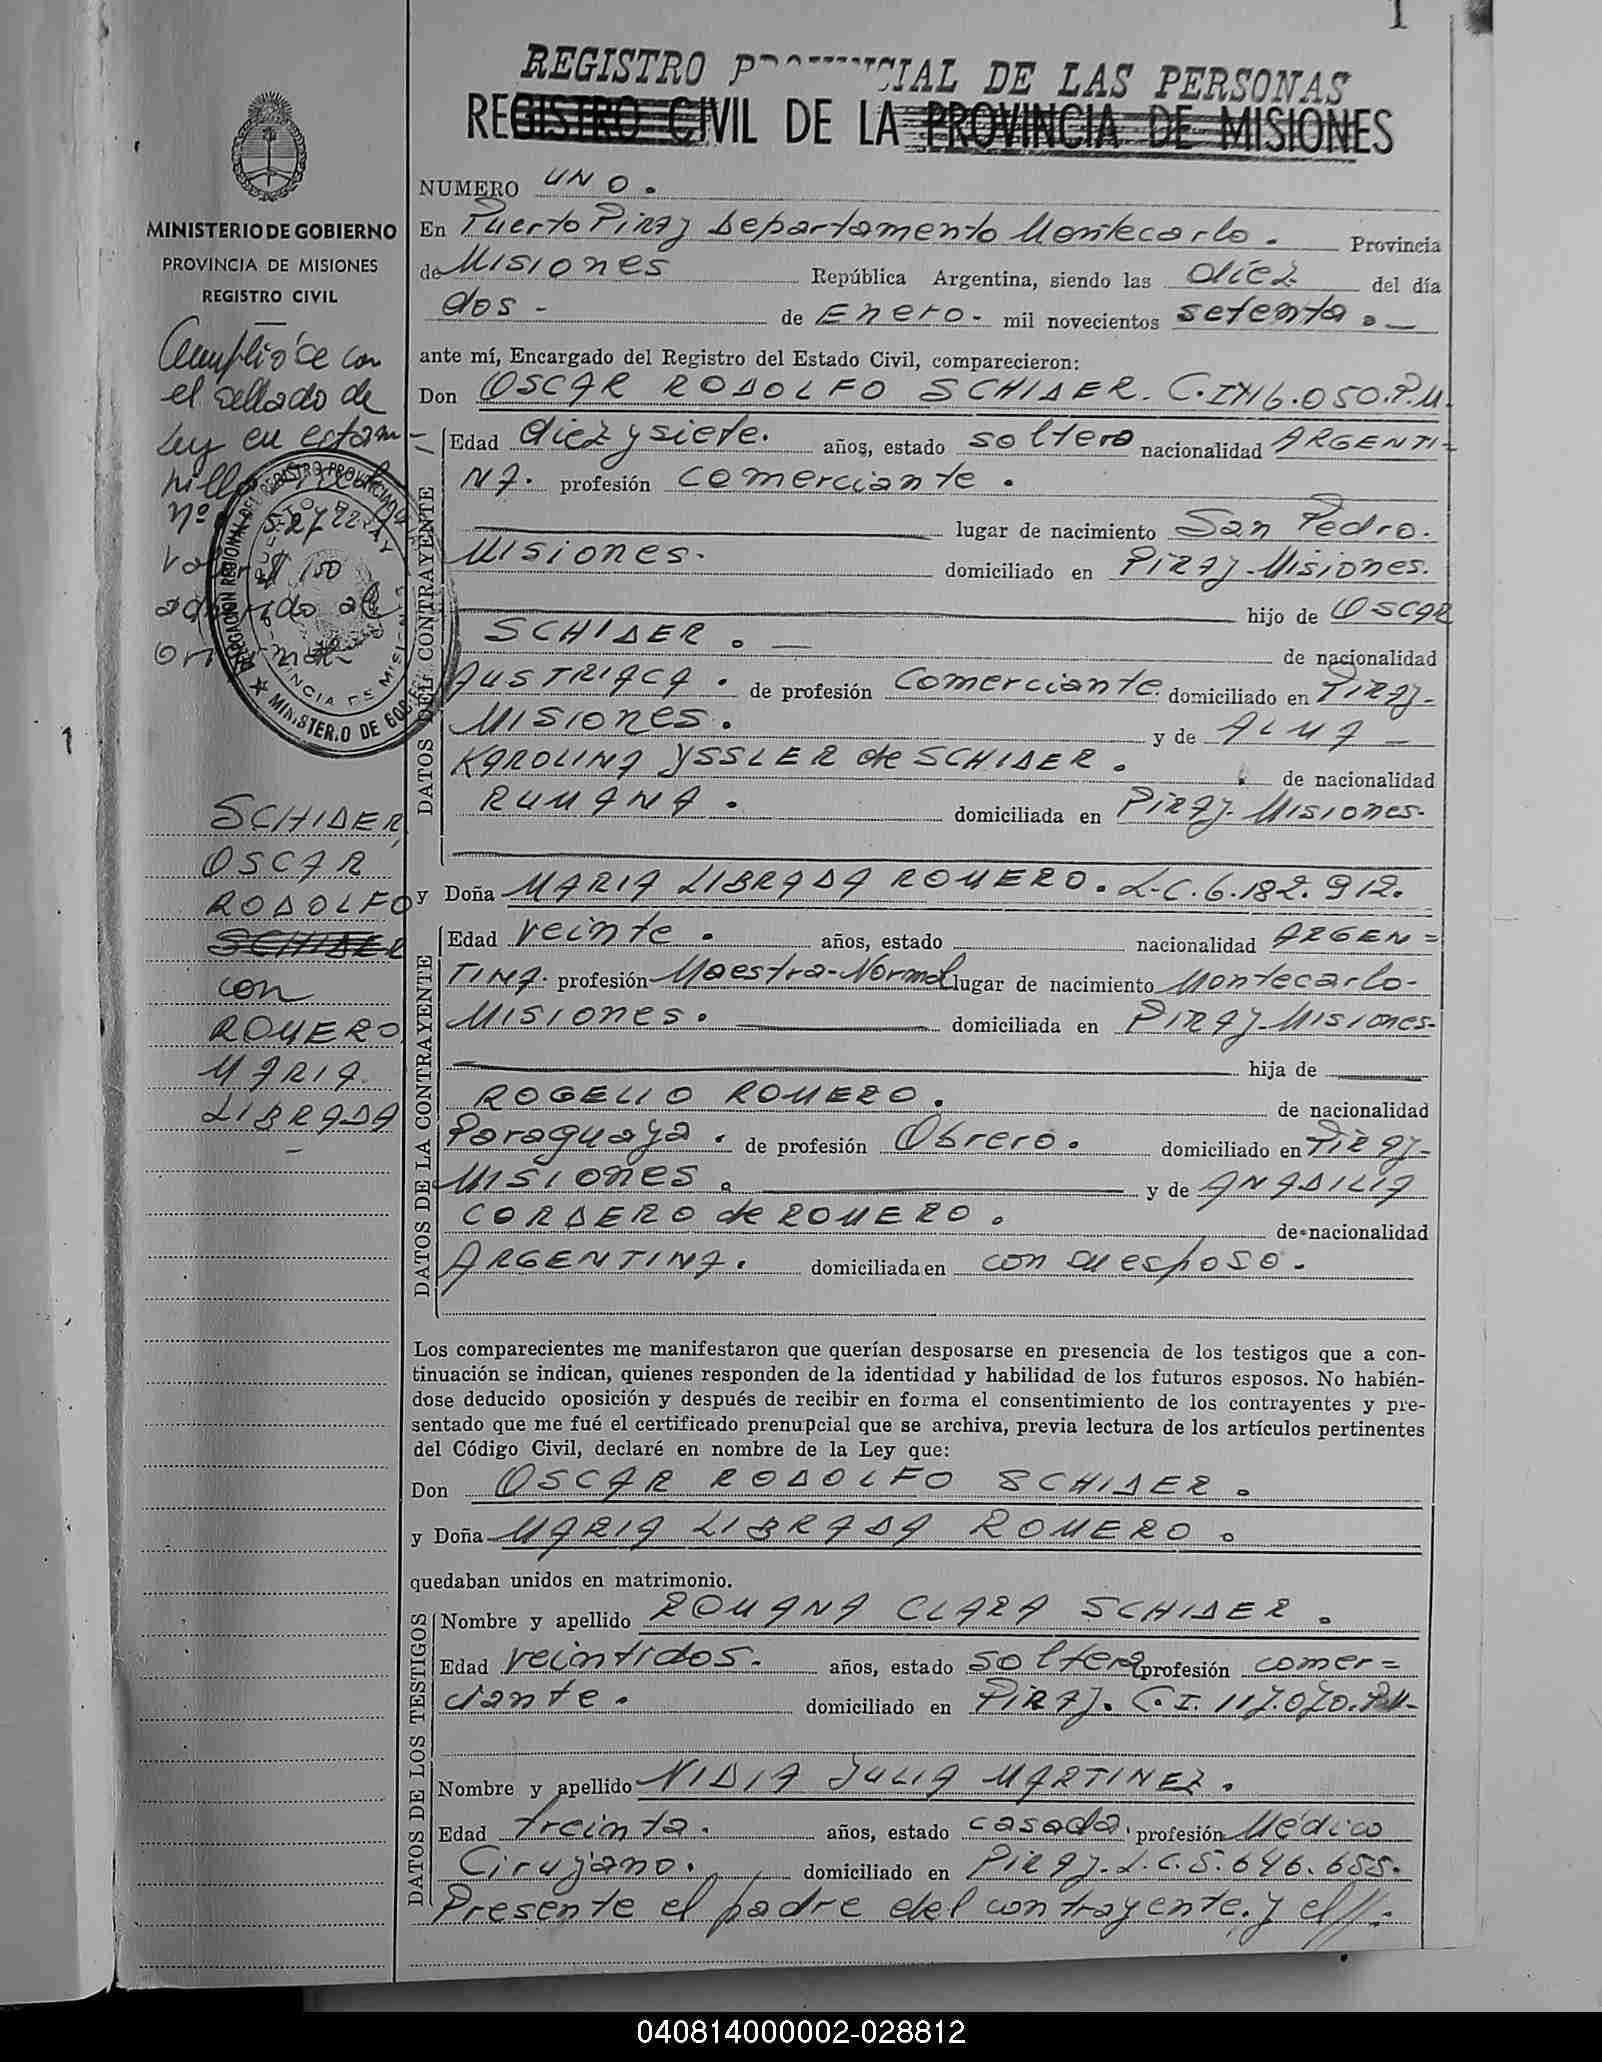 1
REGISTRO PROVINCIAL DE LAS PERSONAS
REGISTRO CIVIL DE LA PROVINCIA DE MISIONES
MINISTERIO DE GOBIERNO
PROVINCIA DE MISIONES
REGISTRO CIVIL
Cumplióse con
el sellado de
Ley en estam-
pilla
nº 52722
valor $ 150
adherido al
original
1
SCHIDER,
OSCAR
RODOLFO
SCHIDER
con
ROMERO
MARIA
LIBRADA
NUMERO UNO.
En Puerto Piray Departamento Montecarlo. Provincia
de Misiones República Argentina, siendo las diez del día
dos - de Enero. mil novecientos setenta.
ante mí, Encargado del Registro del Estado Civil, comparecieron:
Don OSCAR RODOLFO SCHIDER. C.I. 116.050.P.M.
DATOS DEL CONTRAYENTE
Edad diez y siete. años, estado soltero nacionalidad ARGENTI-
NA. profesión comerciante.
lugar de nacimiento San Pedro.
Misiones. domiciliado en Piray-Misiones.
hijo de OSCAR
SCHIDER. de nacionalidad
AUSTRIACA. de profesión Comerciante. domiciliado en Piray-
Misiones. y de ALMA
KAROLINA YSSLER de SCHIDER. de nacionalidad
RUMANA. domiciliada en Piray-Misiones-
y Doña MARIA LIBRADA ROMERO. L.C. 6.182.912.
DATOS DE LA CONTRAYENTE
Edad veinte. años, estado nacionalidad ARGEN=
TINA. profesión Maestra-Normal lugar de nacimiento Montecarlo-
Misiones. domiciliada en Piray-Misiones-
hija de
ROGELIO ROMERO. de nacionalidad
Paraguaya. de profesión Obrero. domiciliado en Piray-
Misiones. y de ANADILIA
CORDERO de ROMERO. de nacionalidad
ARGENTINA. domiciliada en con su esposo.
Los comparecientes me manifestaron que querían desposarse en presencia de los testigos que a con-
tinuación se indican, quienes responden de la identidad y habilidad de los futuros esposos. No habién-
dose deducido oposición y después de recibir en forma el consentimiento de los contrayentes y pre-
sentado que me fué el certificado prenupcial que se archiva, previa lectura de los artículos pertinentes
del Código Civil, declaré en nombre de la Ley que:
Don OSCAR RODOLFO SCHIDER.
y Doña MARIA LIBRADA ROMERO.
quedaban unidos en matrimonio.
DATOS DE LOS TESTIGOS
Nombre y apellido ROMANA CLARA SCHIDER.
Edad veintidos. años, estado soltera profesión comer=
ciante. domiciliado en Piray. C.I. 117.070.P.M-
Nombre y apellido NIDIA JULIA MARTINEZ.
Edad treinta. años, estado casada. profesión Médico
Cirujano. domiciliado en Piray. L.C. 5.646.655.
Presente el padre del contrayente. y el//.
040814000002-028812